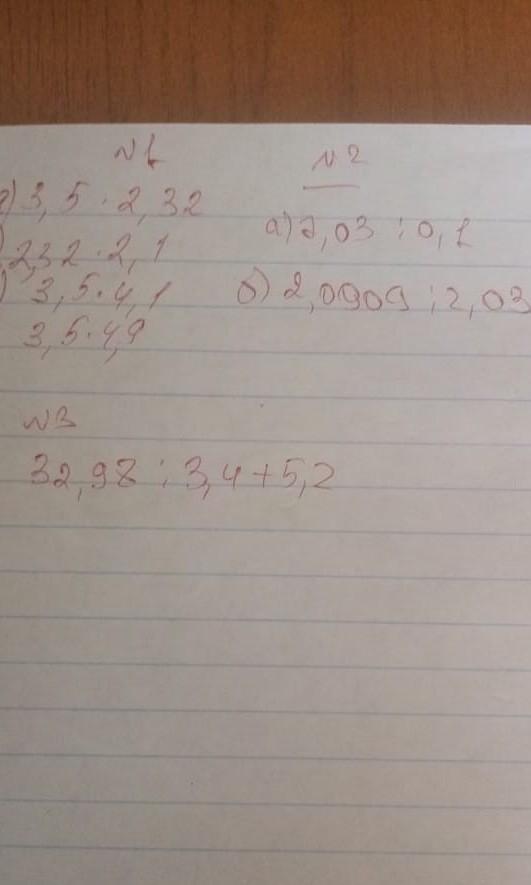 №1
а) 3,5 · 2,32
) 2,32 · 2,1
) 3,5 · 4,1
3,5 · 4,9
№2
а) 2,03 : 0,1
б) 2,0909 : 2,03
№3
32,98 : 3,4 + 5,2